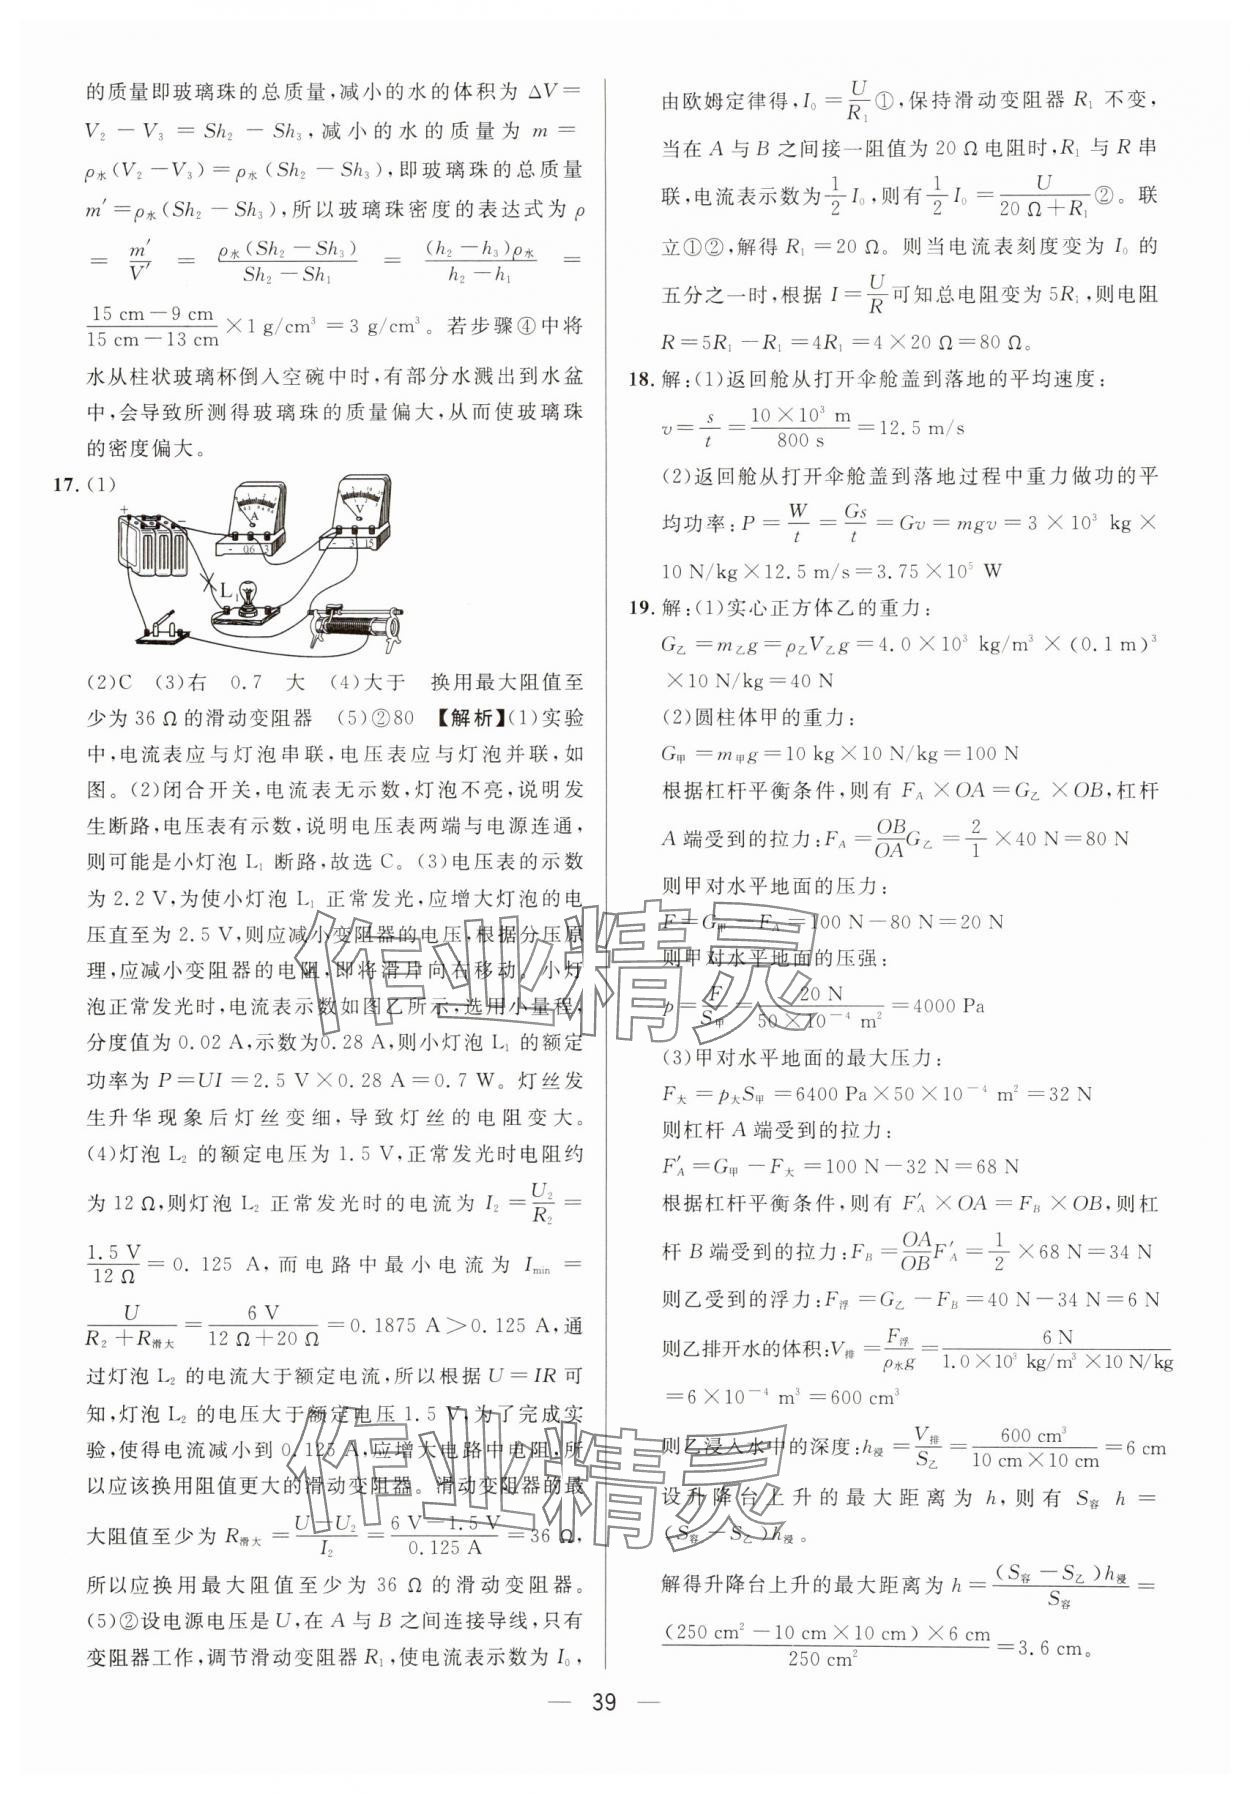 的质量即玻璃珠的总质量,减小的水的体积为 ΔV=
V₂－V₃=Sh₂－Sh₃,减小的水的质量为 m=
ρ水(V₂－V₃)=ρ水(Sh₂－Sh₃),即玻璃珠的总质量
m′=ρ水(Sh₂－Sh₃),所以玻璃珠密度的表达式为 ρ
= m′/V′ = ρ水(Sh₂－Sh₃)/(Sh₂－Sh₁) = (h₂－h₃)ρ水/(h₂－h₁) =
(15 cm－9 cm)/(15 cm－13 cm)×1 g/cm³=3 g/cm³。若步骤④中将
水从柱状玻璃杯倒入空碗中时,有部分水溅出到水盆
中,会导致所测得玻璃珠的质量偏大,从而使玻璃珠
的密度偏大。
17.(1)
+ － A － 0.6 3 V － 3 15 L₁
(2)C (3)右 0.7 大 (4)大于 换用最大阻值至
少为 36 Ω 的滑动变阻器 (5)②80 【解析】(1)实验
中,电流表应与灯泡串联,电压表应与灯泡并联,如
图。(2)闭合开关,电流表无示数,灯泡不亮,说明发
生断路,电压表有示数,说明电压表两端与电源连通,
则可能是小灯泡 L₁ 断路,故选 C。(3)电压表的示数
为 2.2 V,为使小灯泡 L₁ 正常发光,应增大灯泡的电
压直至为 2.5 V,则应减小变阻器的电压,根据分压原
理,应减小变阻器的电阻,即将滑片向右移动。小灯
泡正常发光时,电流表示数如图乙所示,选用小量程,
分度值为 0.02 A,示数为0.28 A,则小灯泡 L₁ 的额定
功率为 P=UI=2.5 V×0.28 A=0.7 W。灯丝发
生升华现象后灯丝变细,导致灯丝的电阻变大。
(4)灯泡 L₂ 的额定电压为 1.5 V,正常发光时电阻约
为 12 Ω,则灯泡 L₂ 正常发光时的电流为 I₂=U₂/R₂=
1.5 V/12 Ω=0.125 A,而电路中最小电流为 Imin=
U/(R₂+R滑大)=6 V/(12 Ω+20 Ω)=0.1875 A>0.125 A,通
过灯泡 L₂ 的电流大于额定电流,所以根据 U=IR 可
知,灯泡 L₂ 的电压大于额定电压 1.5 V,为了完成实
验,使得电流减小到 0.125 A,应增大电路中电阻,所
以应该换用阻值更大的滑动变阻器。滑动变阻器的最
大阻值至少为 R滑大=(U－U₂)/I₂=(6 V－1.5 V)/0.125 A=36 Ω,
所以应换用最大阻值至少为 36 Ω 的滑动变阻器。
(5)②设电源电压是 U,在 A 与 B 之间连接导线,只有
变阻器工作,调节滑动变阻器 R₁,使电流表示数为 I₀,
由欧姆定律得,I₀=U/R₁①,保持滑动变阻器 R₁ 不变,
当在 A 与 B 之间接一阻值为 20 Ω 电阻时,R₁ 与 R 串
联,电流表示数为1/2 I₀,则有1/2 I₀=U/(20 Ω+R₁)②。联
立①②,解得 R₁=20 Ω。则当电流表刻度变为 I₀ 的
五分之一时,根据 I=U/R 可知总电阻变为 5R₁,则电阻
R=5R₁－R₁=4R₁=4×20 Ω=80 Ω。
18.解:(1)返回舱从打开伞舱盖到落地的平均速度:
v=s/t=(10×10³ m)/(800 s)=12.5 m/s
(2)返回舱从打开伞舱盖到落地过程中重力做功的平
均功率:P=W/t=Gs/t=Gv=mgv=3×10³ kg×
10 N/kg×12.5 m/s=3.75×10⁵ W
19.解:(1)实心正方体乙的重力:
G乙=m乙g=ρ乙V乙g=4.0×10³ kg/m³×(0.1 m)³
×10 N/kg=40 N
(2)圆柱体甲的重力:
G甲=m甲g=10 kg×10 N/kg=100 N
根据杠杆平衡条件,则有 F_A×OA=G乙×OB,杠杆
A 端受到的拉力:F_A=OB/OA G乙=2/1×40 N=80 N
则甲对水平地面的压力:
F=G甲－F_A=100 N－80 N=20 N
则甲对水平地面的压强:
p=F/S甲=20 N/(50×10⁻⁴ m²)=4000 Pa
(3)甲对水平地面的最大压力:
F大=p大S甲=6400 Pa×50×10⁻⁴ m²=32 N
则杠杆 A 端受到的拉力:
F′_A=G甲－F大=100 N－32 N=68 N
根据杠杆平衡条件,则有 F′_A×OA=F_B×OB,则杠
杆 B 端受到的拉力:F_B=OA/OB F′_A=1/2×68 N=34 N
则乙受到的浮力:F浮=G乙－F_B=40 N－34 N=6 N
则乙排开水的体积:V排=F浮/ρ水g=6 N/(1.0×10³ kg/m³×10 N/kg)
=6×10⁻⁴ m³=600 cm³
则乙浸入水中的深度:h浸=V排/S乙=600 cm³/(10 cm×10 cm)=6 cm
设升降台上升的最大距离为 h,则有 S容 h=
(S容－S乙)h浸。
解得升降台上升的最大距离为 h=(S容－S乙)h浸/S容=
(250 cm²－10 cm×10 cm)×6 cm/250 cm²=3.6 cm。
作业精灵
作业精灵
— 39 —